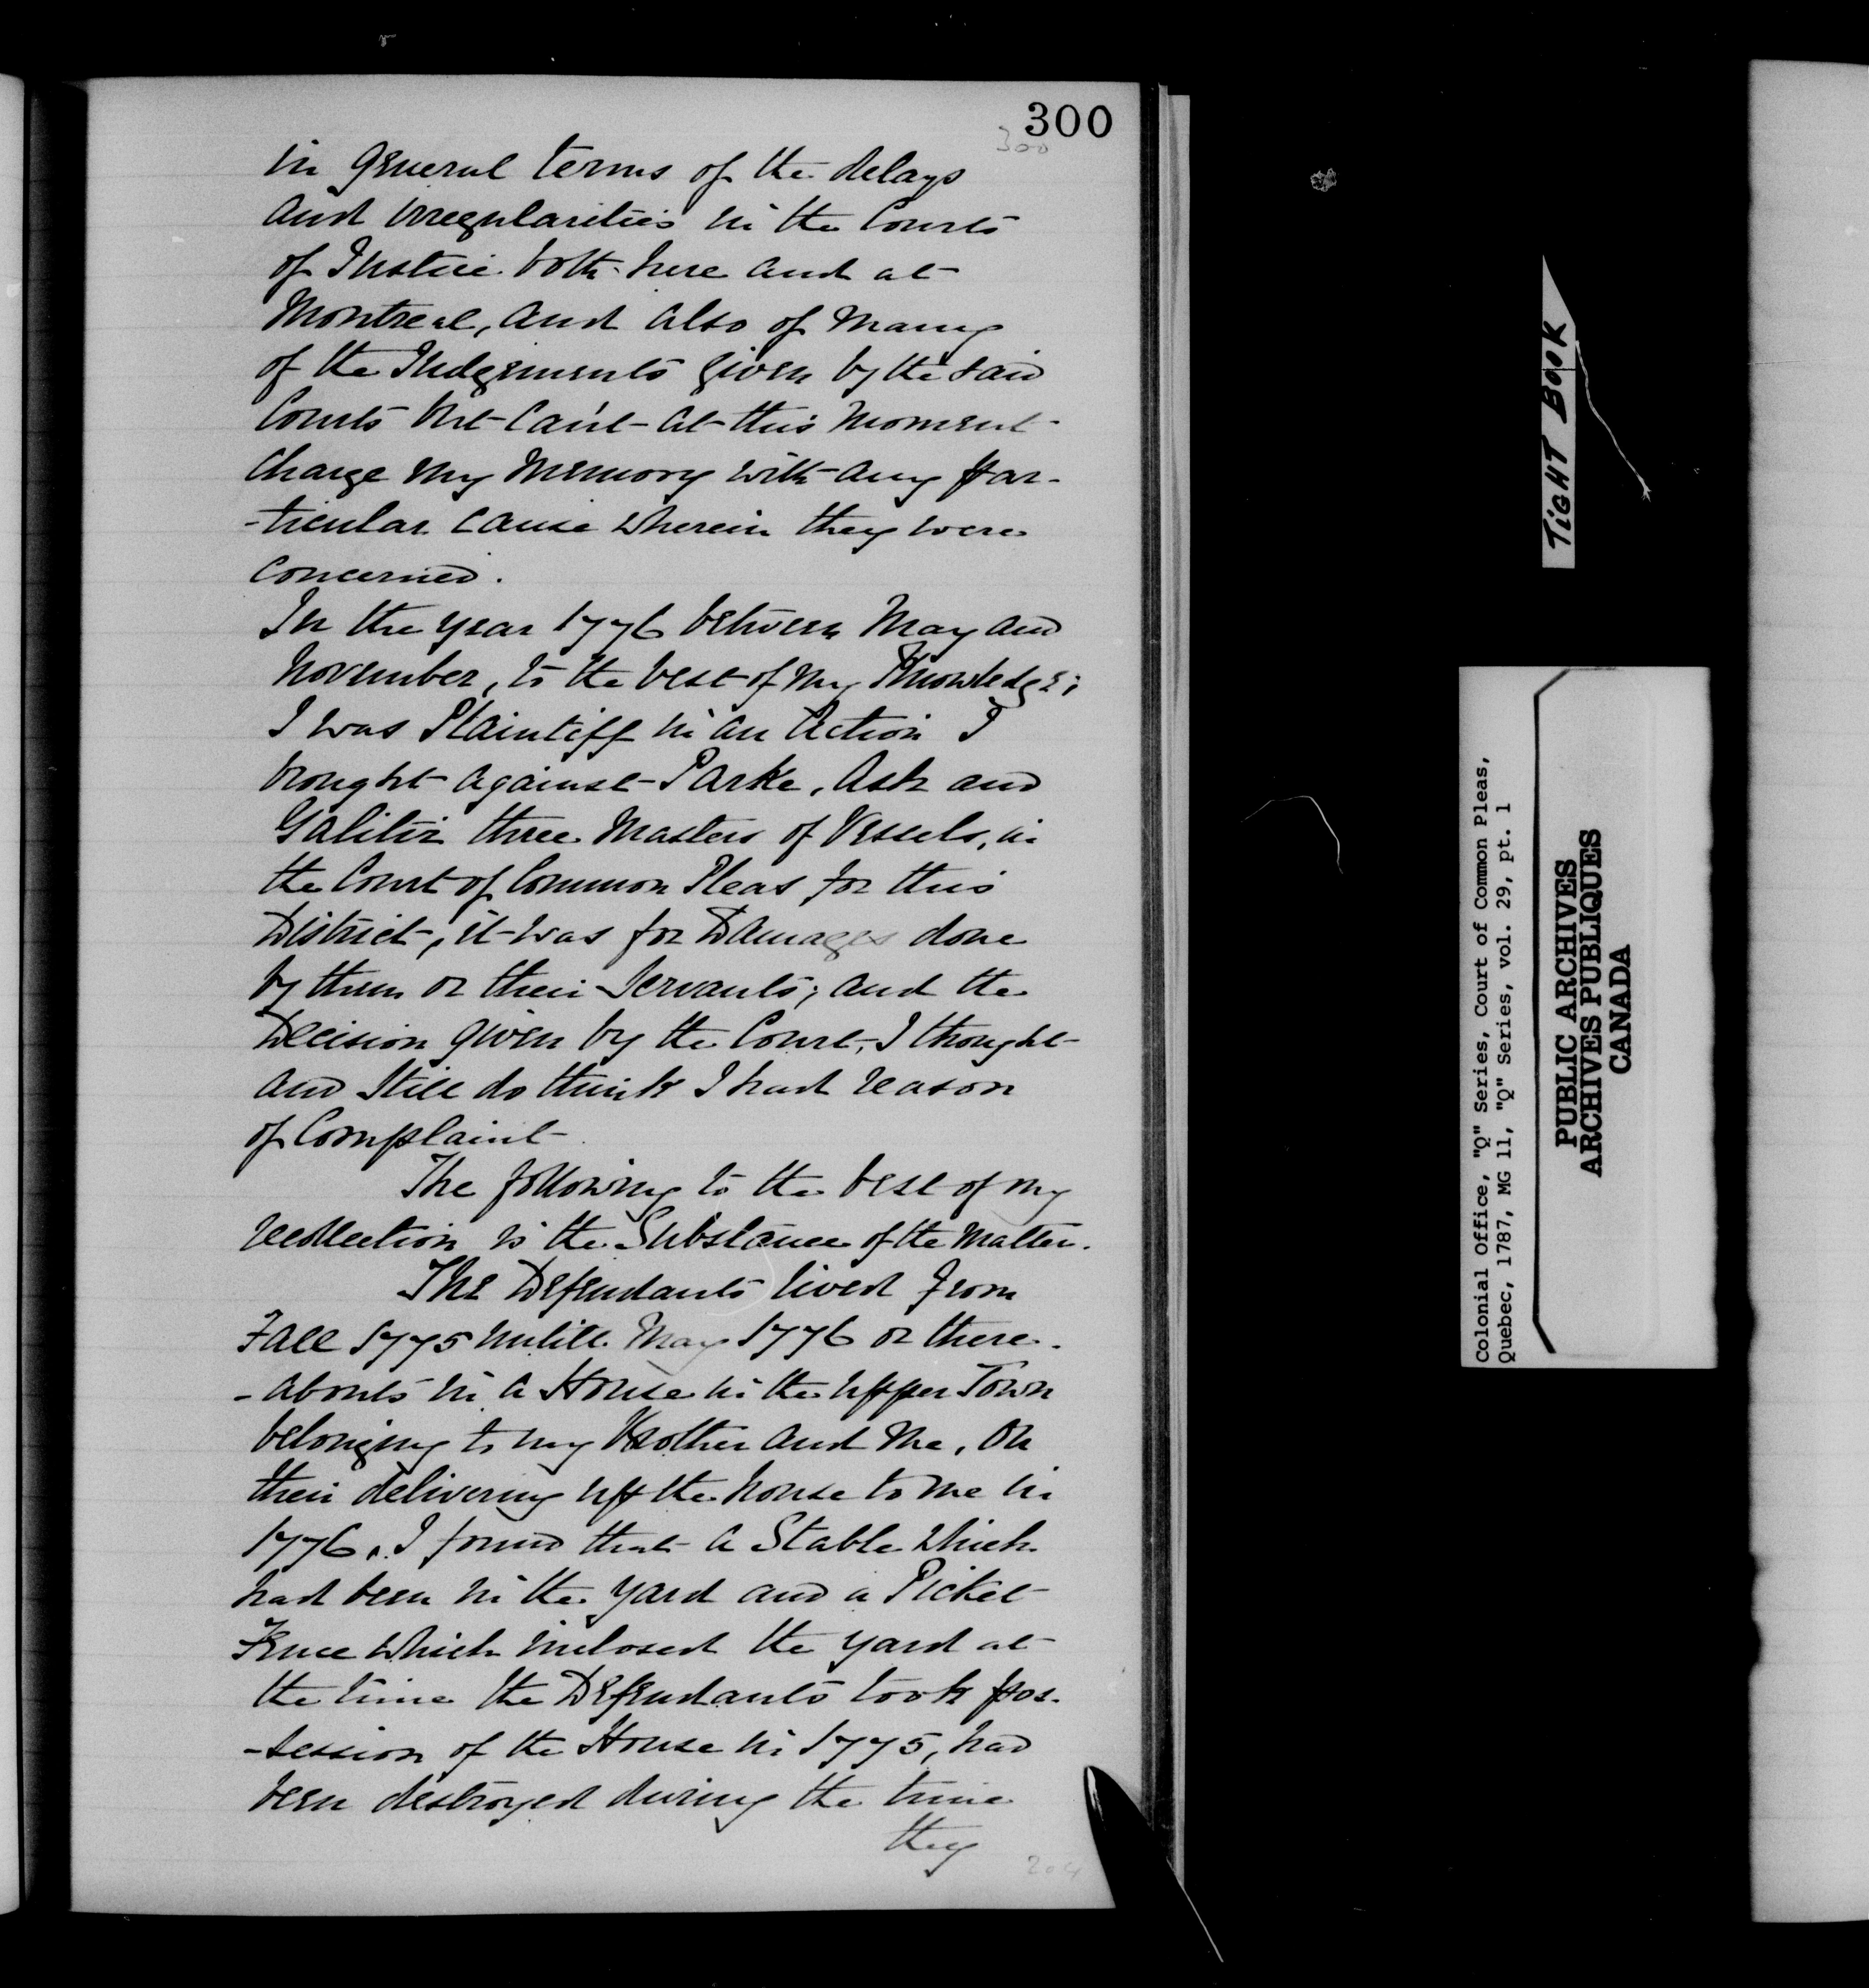 300
300
in general terms of the delays
and irregularities in the Courts
of Justice both here and at
Montreal, and also of many
of the Judgements given by the said
Courts but can't at this moment
charge my memory with any par-
-ticular cause wherein they were
concerned.
In the year 1776 between May and
November, to the best of my Knowledge;
I was Plaintiff in an Action I
brought against Parke, Ash and
three Masters of Vessels, in
the Court of Common Pleas for this
District, it was for Damages done
by them or their Servants; and the
Decision given by the Court, I thought
and still do think I had reason
of Complaint
The following to the best of my
recollection is the Substance of the Matter.
The Defendants lived from
Fall 1775 untill May 1776 or there-
-abouts in a House in the upper Town
belonging to my Brother and me, On
their delivering up the house to me in
1776, I found that a Stable which
had been in the yard and a Picket
Fence which inclosed the yard at
the time the Defendants took pos-
-session of the House in 1775, had
been destroyed during the time
they
204
TIGHT BOOK
Colonial Office, "Q" Series, Court of Common Pleas,
Quebec, 1787, MG 11, "Q" Series, vol. 29, pt. 1
PUBLIC ARCHIVES
ARCHIVES PUBLIQUES
CANADA